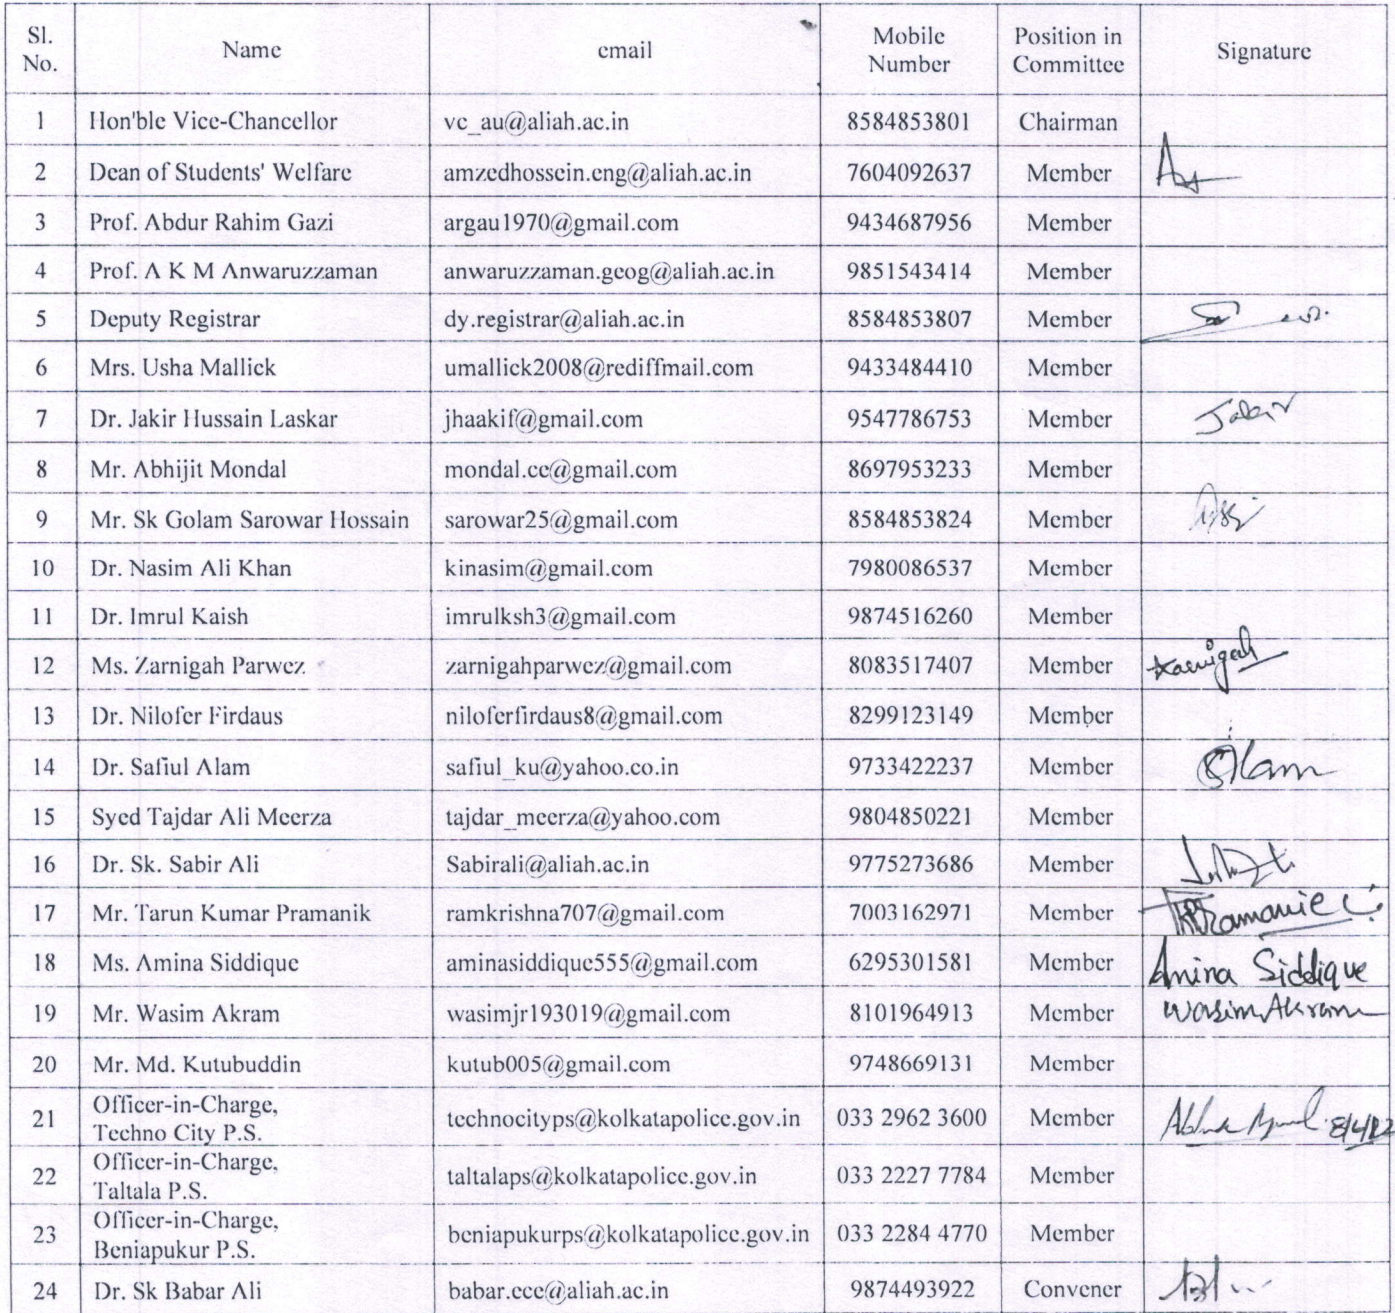 Sl. No. Name email Mobile Number Position in Committee Signature
1 Hon'ble Vice-Chancellor vc_au@aliah.ac.in 8584853801 Chairman
2 Dean of Students' Welfare amzedhossein.eng@aliah.ac.in 7604092637 Member
3 Prof. Abdur Rahim Gazi argau1970@gmail.com 9434687956 Member
4 Prof. A K M Anwaruzzaman anwaruzzaman.geog@aliah.ac.in 9851543414 Member
5 Deputy Registrar dy.registrar@aliah.ac.in 8584853807 Member
6 Mrs. Usha Mallick umallick2008@rediffmail.com 9433484410 Member
7 Dr. Jakir Hussain Laskar jhaakif@gmail.com 9547786753 Member Jakir
8 Mr. Abhijit Mondal mondal.ce@gmail.com 8697953233 Member
9 Mr. Sk Golam Sarowar Hossain sarowar25@gmail.com 8584853824 Member
10 Dr. Nasim Ali Khan kinasim@gmail.com 7980086537 Member
11 Dr. Imrul Kaish imrulksh3@gmail.com 9874516260 Member
12 Ms. Zarnigah Parwez zarnigahparwez@gmail.com 8083517407 Member Zarnigah
13 Dr. Nilofer Firdaus niloferfirdaus8@gmail.com 8299123149 Member
14 Dr. Safiul Alam safiul_ku@yahoo.co.in 9733422237 Member
15 Syed Tajdar Ali Meerza tajdar_meerza@yahoo.com 9804850221 Member
16 Dr. Sk. Sabir Ali Sabirali@aliah.ac.in 9775273686 Member
17 Mr. Tarun Kumar Pramanik ramkrishna707@gmail.com 7003162971 Member
18 Ms. Amina Siddique aminasiddique555@gmail.com 6295301581 Member Amina Siddique
19 Mr. Wasim Akram wasimjr193019@gmail.com 8101964913 Member Wasim Akram
20 Mr. Md. Kutubuddin kutub005@gmail.com 9748669131 Member
21 Officer-in-Charge, Techno City P.S. technocityps@kolkatapolice.gov.in 033 2962 3600 Member
22 Officer-in-Charge, Taltala P.S. taltalaps@kolkatapolice.gov.in 033 2227 7784 Member
23 Officer-in-Charge, Beniapukur P.S. beniapukurps@kolkatapolice.gov.in 033 2284 4770 Member
24 Dr. Sk Babar Ali babar.ece@aliah.ac.in 9874493922 Convener